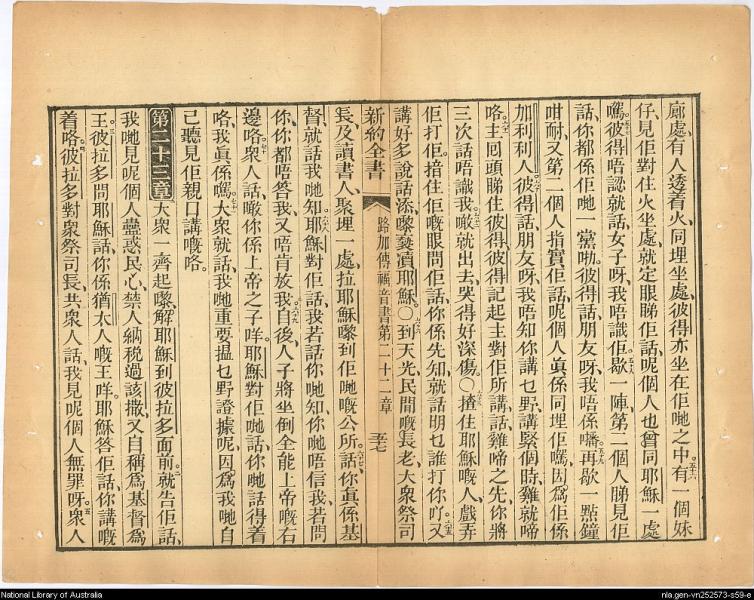 廊處、有人透着火、同埋坐處、彼得亦坐在佢哋之中、五六有一個妹
仔、見佢對住火坐處、就定眼睇佢話、呢個人也曾同耶穌一處
嘅、五七彼得唔認、就話、女子呀、我唔識佢、五八歇一陣、第二個人睇見佢
話、你都係佢哋一黨咯、彼得話、朋友呀、我唔係嘅、五九再歇一點鐘
咁耐、又第二個人指實佢話、呢個人眞係同埋佢嘅、因爲佢係
加利利人、六十彼得話、朋友呀、我唔知你講乜野、講緊個時、雞就啼
咯、六一主回頭睇住彼得、彼得記起主對佢所講話、雞啼之先、你將
三次話唔識我、六二噉就出去哭得好深傷。〇六三揸住耶穌嘅人、戲弄
佢打佢、六四揞住佢嘅眼問佢話、你係先知就話明乜誰打你吖、六五又
講好多說話添嚟褻瀆耶穌。〇六六到天光、民間嘅長老、大衆祭司
新約全書 路加傳福音書第二十二章 至七
長、及讀書人、聚埋一處、拉耶穌嚟到佢哋嘅公所、六七話、你眞係基
督、就話我哋知、耶穌對佢話、我若話你哋知、你哋唔信我、六八若問
你、你都唔答我、又唔肯放我、六九自後、人子將坐倒全能上帝嘅右
邊咯、七十衆人話、噉你係上帝之子咩、耶穌對佢哋話、你哋話得着
咯、我眞係嘅、七一大衆就話、我哋重要搵乜野證據呢、因爲我哋自
己聽見佢親口講嘅咯。
第二十三章 大衆一齊起嚟、解耶穌到彼拉多面前、二就告佢話、
我哋見呢個人蠱惑民心、禁人納稅過該撒、又自稱爲基督爲
王、三彼拉多問耶穌話、你係猶太人嘅王咩、耶穌答佢話、你講嘅
着咯、四彼拉多對衆祭司長、共衆人話、我見呢個人無罪呀、五衆人
National Library of Australia
nla.gen-vn252573-s59-e